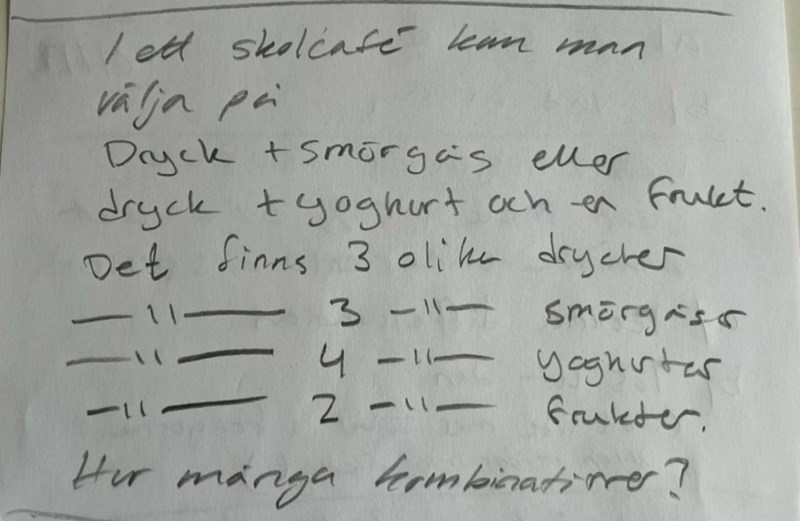 I ett skolcafé kan man
välja på
Dryck + smörgås eller
dryck + yoghurt och en frukt.
Det finns 3 olika drycker
— 11 — 3 — 11 — smörgåsar
— 11 — 4 — 11 — yoghurtar
— 11 — 2 — 11 — frukter.
Hur många kombinationer?